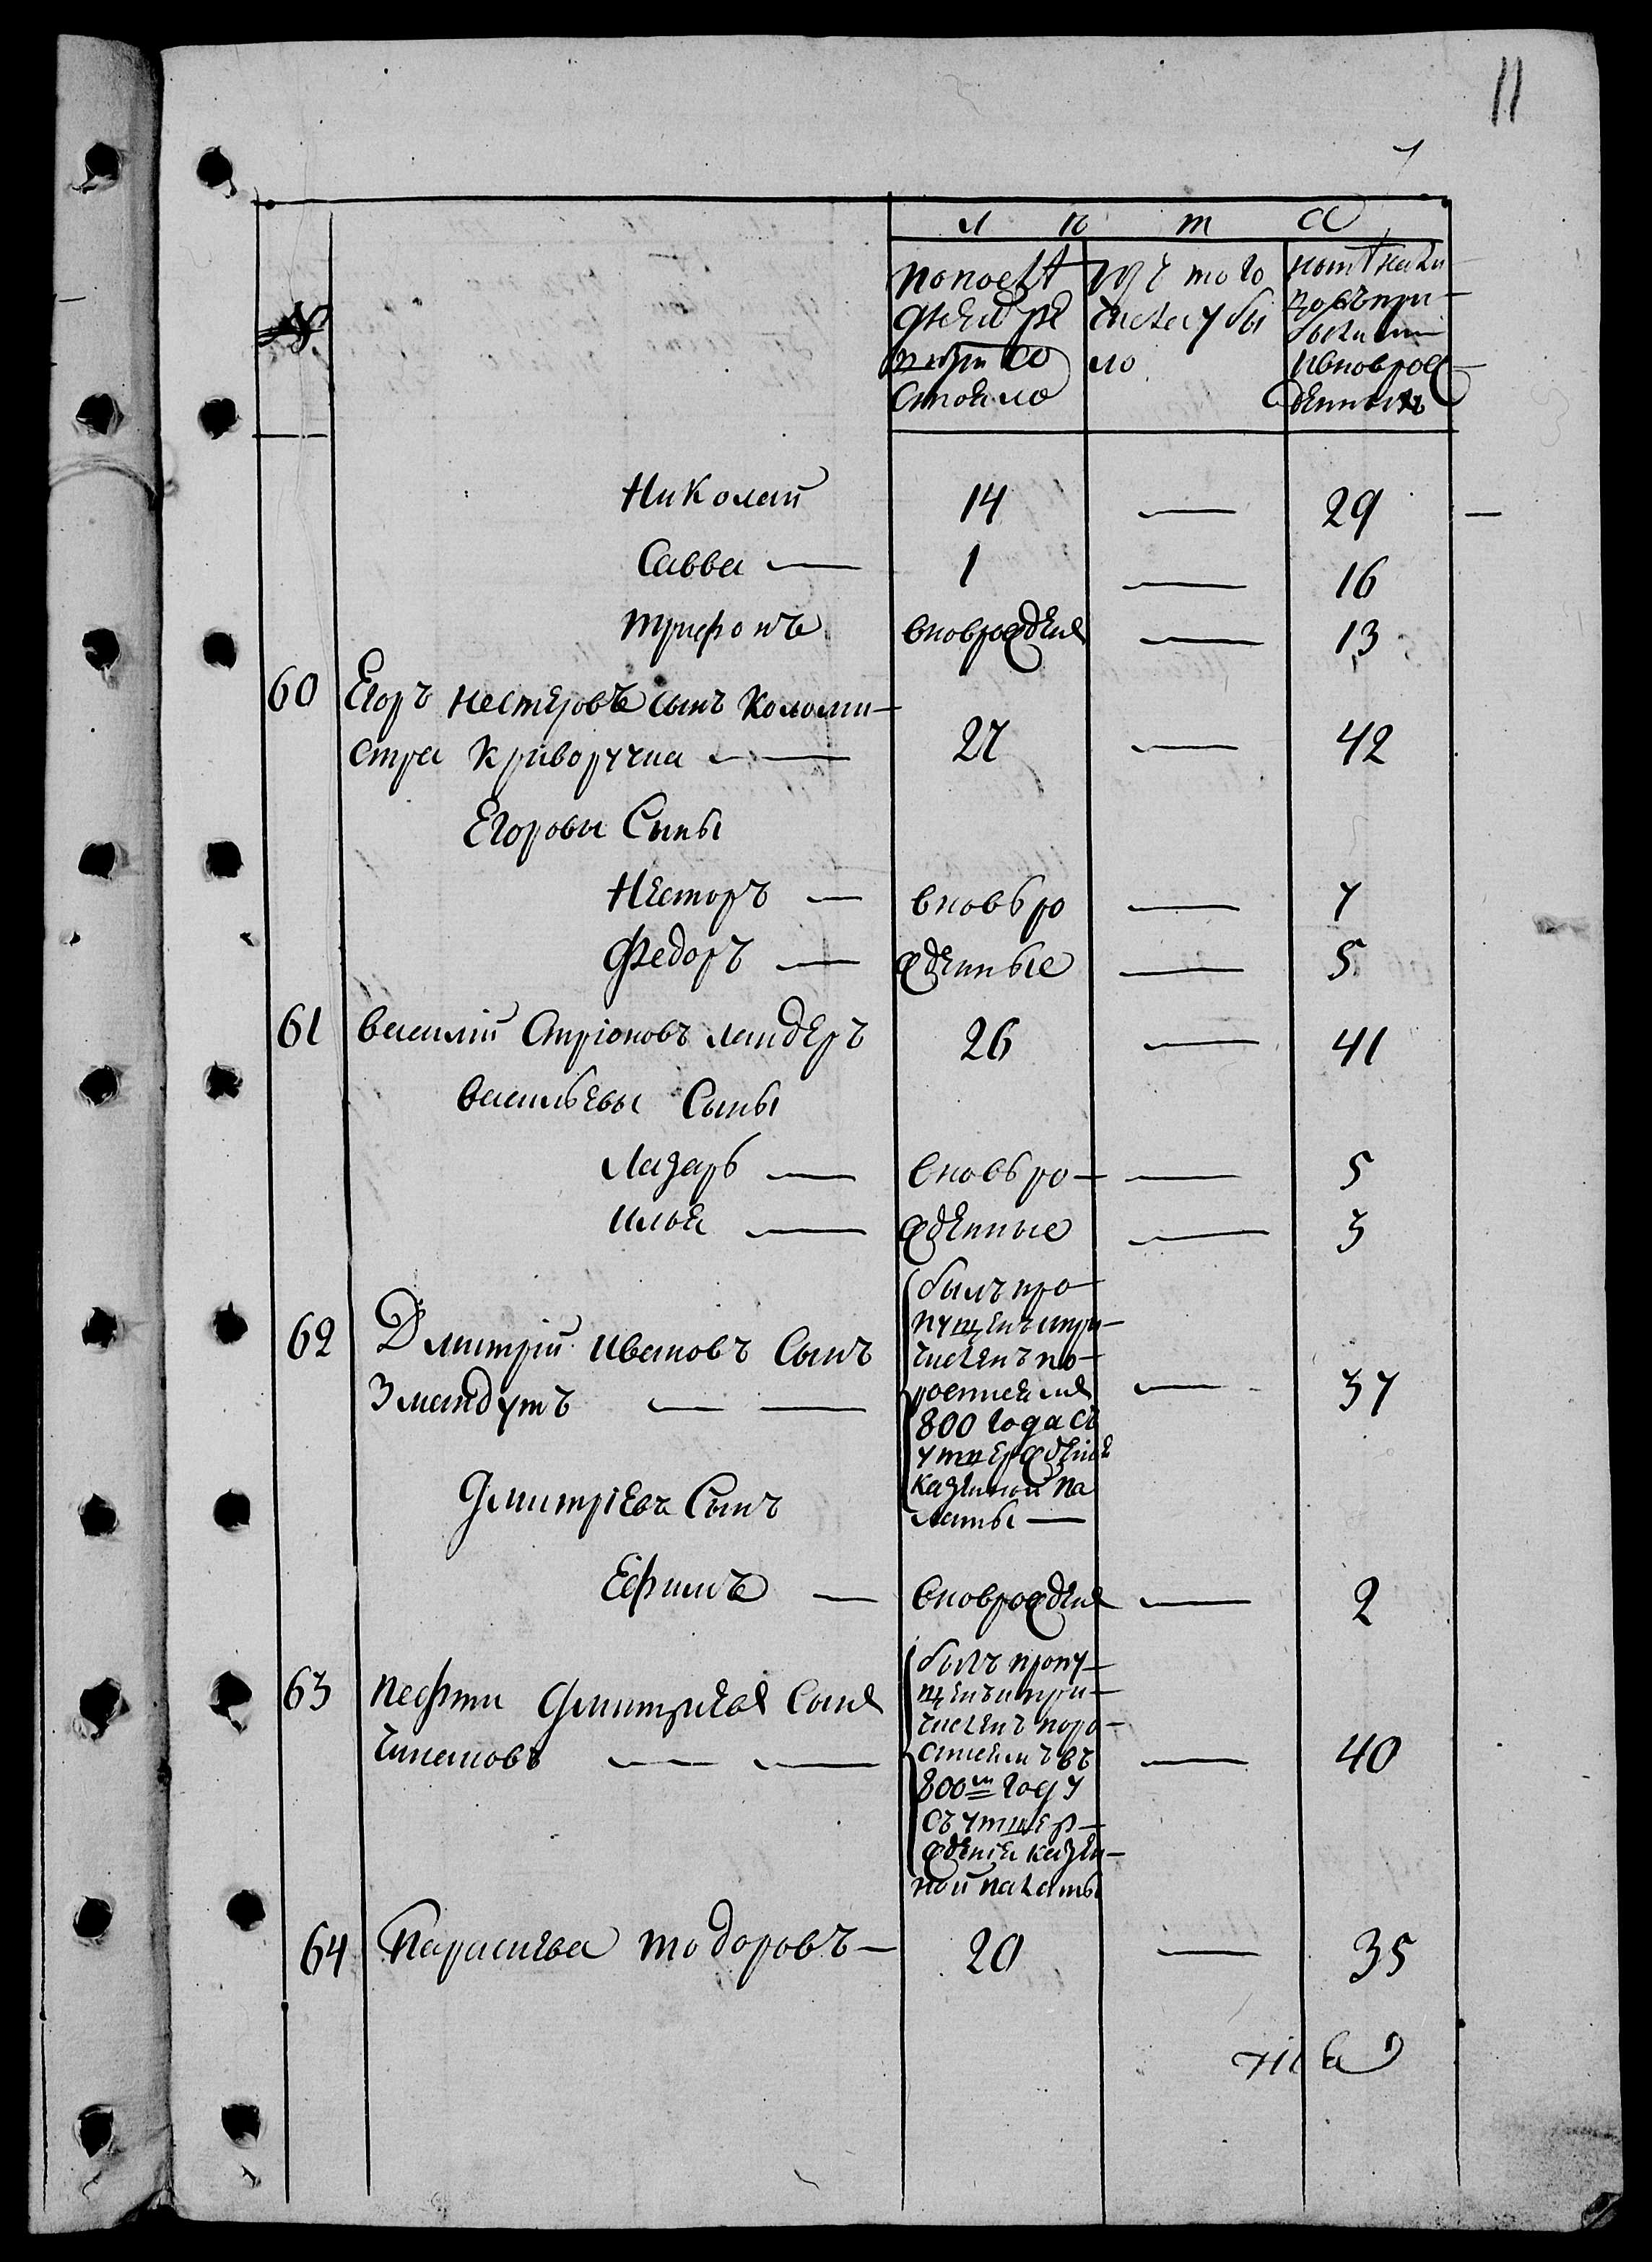 11
№
Л Ѣ Т А
по послѣ
дней ре
визіи со
стояло
изъ того
числа убы
ло
нынѣ на ли
цо съ при
былыми
и вновь рож
денныхъ
Николай 14 — 29
Савва — 1 — 16
Трифонъ вновь рожден — 13
60 Егоръ Нестеровъ сынъ Коломи-
стра Криворучка — 27 — 42
Егоровы Сыны
Несторъ — вновь ро — 7
Федоръ — жденные — 5
61 Василій Ландеръ 26 — 41
Васильевы Сыны
Лазарь — вновь ро — 5
Илья — жденные — 3
62 Дмитрій Ивановъ Сынъ
Змандутъ — 37
былъ про
пущенъ и при
численъ по
ревизіи
800 года съ
утвержденія
казенной па
латы —
Дмитріевъ Сынъ
Ефимъ — вновь рожден — 2
63 Дмитріевъ Сынъ
— 40
былъ пропу
щенъ и при
численъ по
въ
800м году
съ утвер
жденія казен
ной палаты
64 Парасківа Тодоровъ — 20 — 35